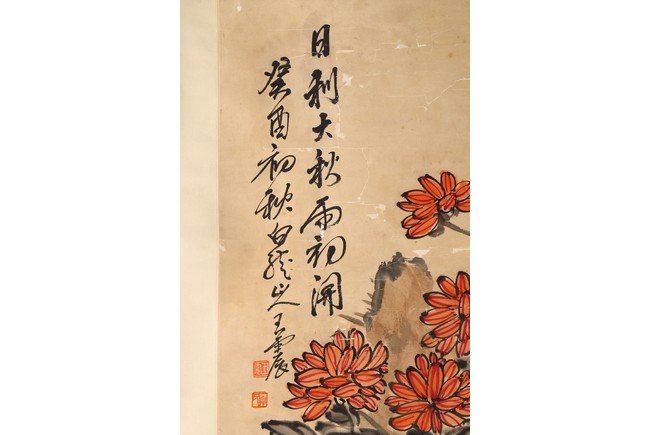 日利大秋雨初開
癸酉初秋白龍山人王震